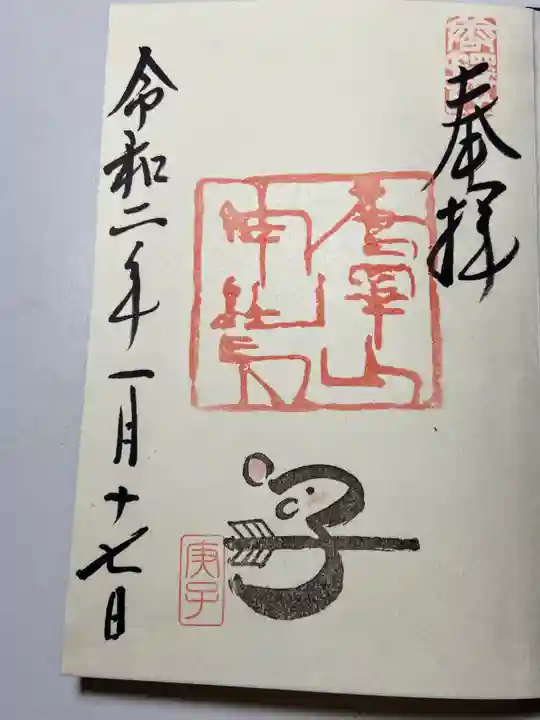 奉拝
唐澤山
神社
子
庚子
令和二年一月十七日